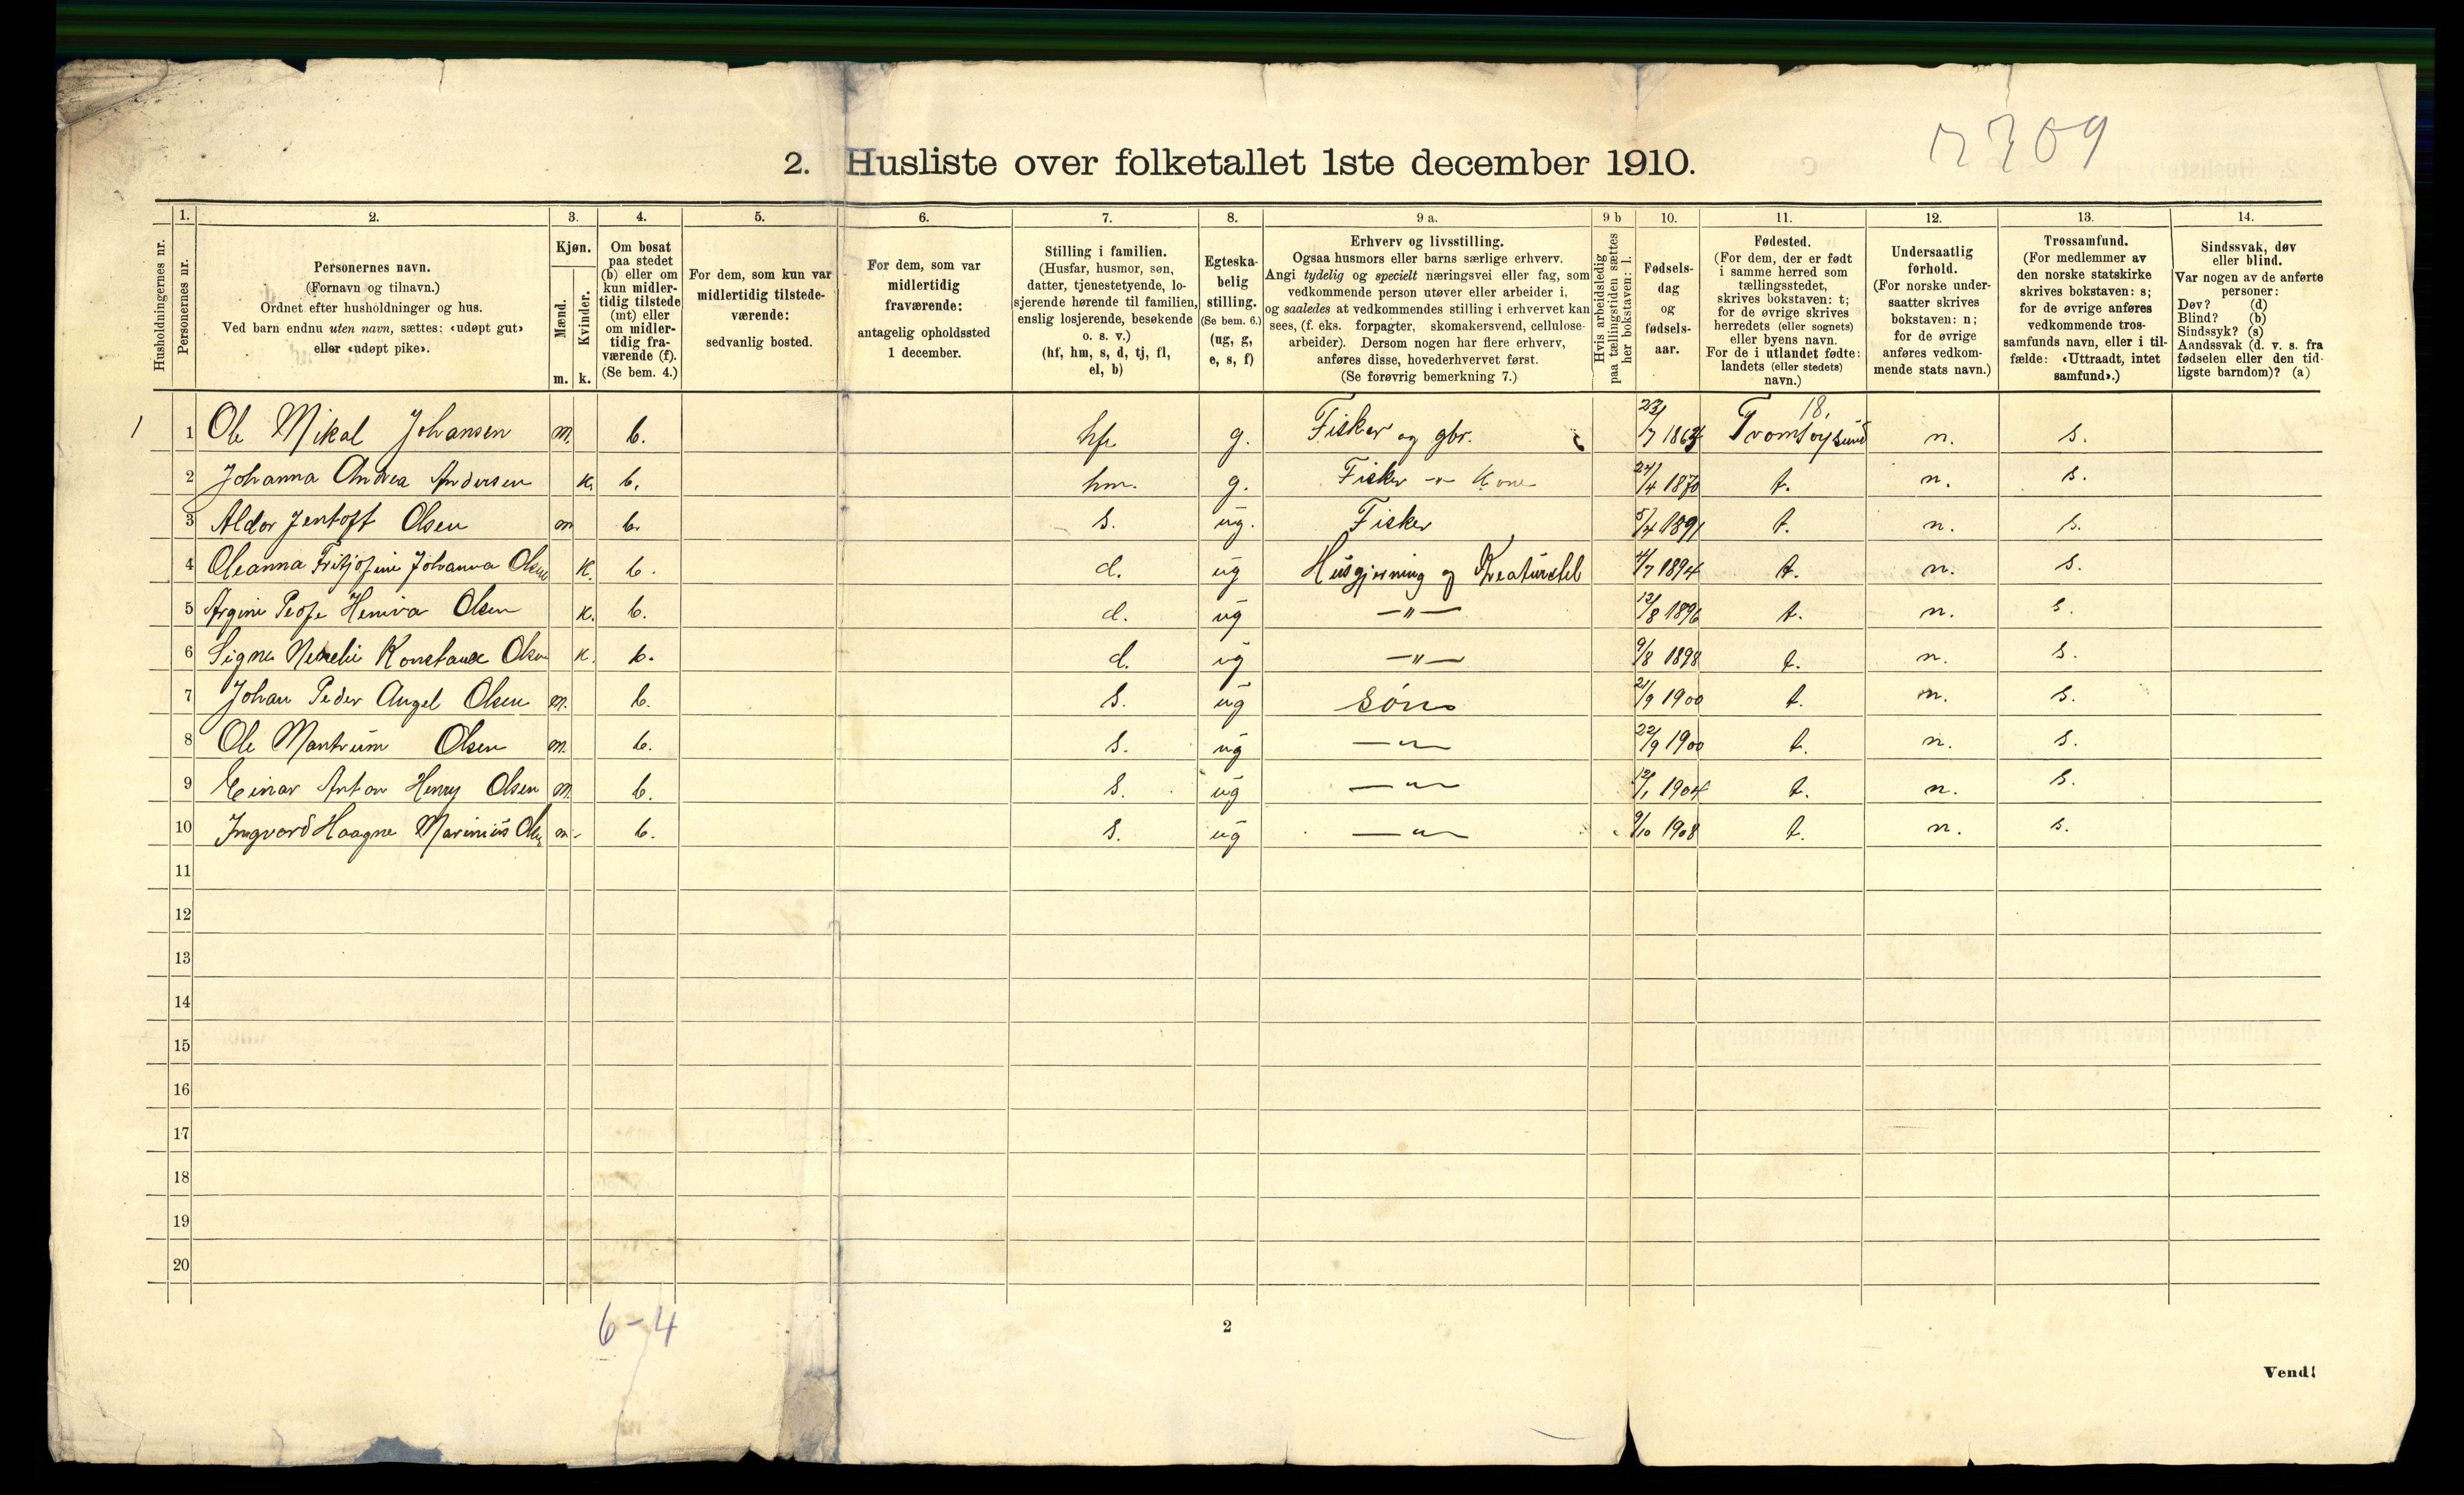 2. Husliste over folketallet 1ste december 1910.
Husholdningernes nr.
1.
Personernes nr.
2.
Personernes navn.
(Fornavn og tilnavn.)
Ordnet efter husholdninger og hus.
Ved barn endnu uten navn, sættes: «udøpt gut»
eller «udøpt pike».
3.
Kjøn.
Mænd.
Kvinder.
m. k.
4.
Om bosat
paa stedet
(b) eller om
kun midler-
tidig tilstede
(mt) eller
om midler-
tidig fra-
værende (f).
(Se bem. 4.)
5.
For dem, som kun var
midlertidig tilstede-
værende:
sedvanlig bosted.
6.
For dem, som var
midlertidig
fraværende:
antagelig opholdssted
1 december.
7.
Stilling i familien.
(Husfar, husmor, søn,
datter, tjenestetyende, lo-
sjerende hørende til familien,
enslig losjerende, besøkende
o. s. v.)
(hf, hm, s, d, tj, fl,
el, b)
8.
Egteska-
belig
stilling.
(Se bem. 6.)
(ug, g,
e, s, f)
9 a.
Erhverv og livsstilling.
Ogsaa husmors eller barns særlige erhverv.
Angi tydelig og specielt næringsvei eller fag, som
vedkommende person utøver eller arbeider i,
og saaledes at vedkommendes stilling i erhvervet kan
sees, (f. eks. forpagter, skomakersvend, cellulose-
arbeider). Dersom nogen har flere erhverv,
anføres disse, hovederhvervet først.
(Se forøvrig bemerkning 7.)
9 b
Hvis arbeidsledig
paa tællingstiden sættes
her bokstaven: l.
10.
Fødsels-
dag
og
fødsels-
aar.
11.
Fødested.
(For dem, der er født
i samme herred som
tællingsstedet,
skrives bokstaven: t;
for de øvrige skrives
herredets (eller sognets)
eller byens navn.
For de i utlandet fødte:
landets (eller stedets)
navn.)
12.
Undersaatlig
forhold.
(For norske under-
saatter skrives
bokstaven: n;
for de øvrige
anføres vedkom-
mende stats navn.)
13.
Trossamfund.
(For medlemmer av
den norske statskirke
skrives bokstaven: s;
for de øvrige anføres
vedkommende tros-
samfunds navn, eller i til-
fælde: «Uttraadt, intet
samfund».)
14.
Sindssvak, døv
eller blind.
Var nogen av de anførte
personer:
Døv? (d)
Blind? (b)
Sindssyk? (s)
Aandssvak (d. v. s. fra
fødselen eller den tid-
ligste barndom)? (a)
1 1 Ole Mikal Johansen m. b. hf. g. Fisker og gbr. 23/7 1863 18. Tromsøysund n. s.
2 Johanna Andrea Andersen k. b. hm. g. Fisker -"- Kone 24/4 1870 t. n. s.
3 Aldor Jentoft Olsen m b. s. ug. Fisker 5/4 1891 t. n. s.
4 Oleanna Fritjofine Johanna Olsen k. b. d. ug Husgjerning og Kreaturstel 4/7 1894 t. n. s.
5 Henriva Olsen k. b. d. ug —"— 12/8 1896 t. n. s.
6 Signe Konstanse Olsen k. b. d. ug —"— 9/8 1898 t. n. s.
7 Johan Peder Angel Olsen m. b. s. ug søn 21/9 1900 t. n. s.
8 Ole Mantrum Olsen m. b. s. ug —"— 22/9 1900 t. n. s.
9 Einar Anton Henry Olsen m. b. s. ug —"— 12/1 1904 t. n. s.
10 Ingvard Haagne Marinius Olsen m. b. s. ug —"— 9/10 1908 t. n. s.
11
12
13
14
15
16
17
18
19
20
6-4
2
Vend!